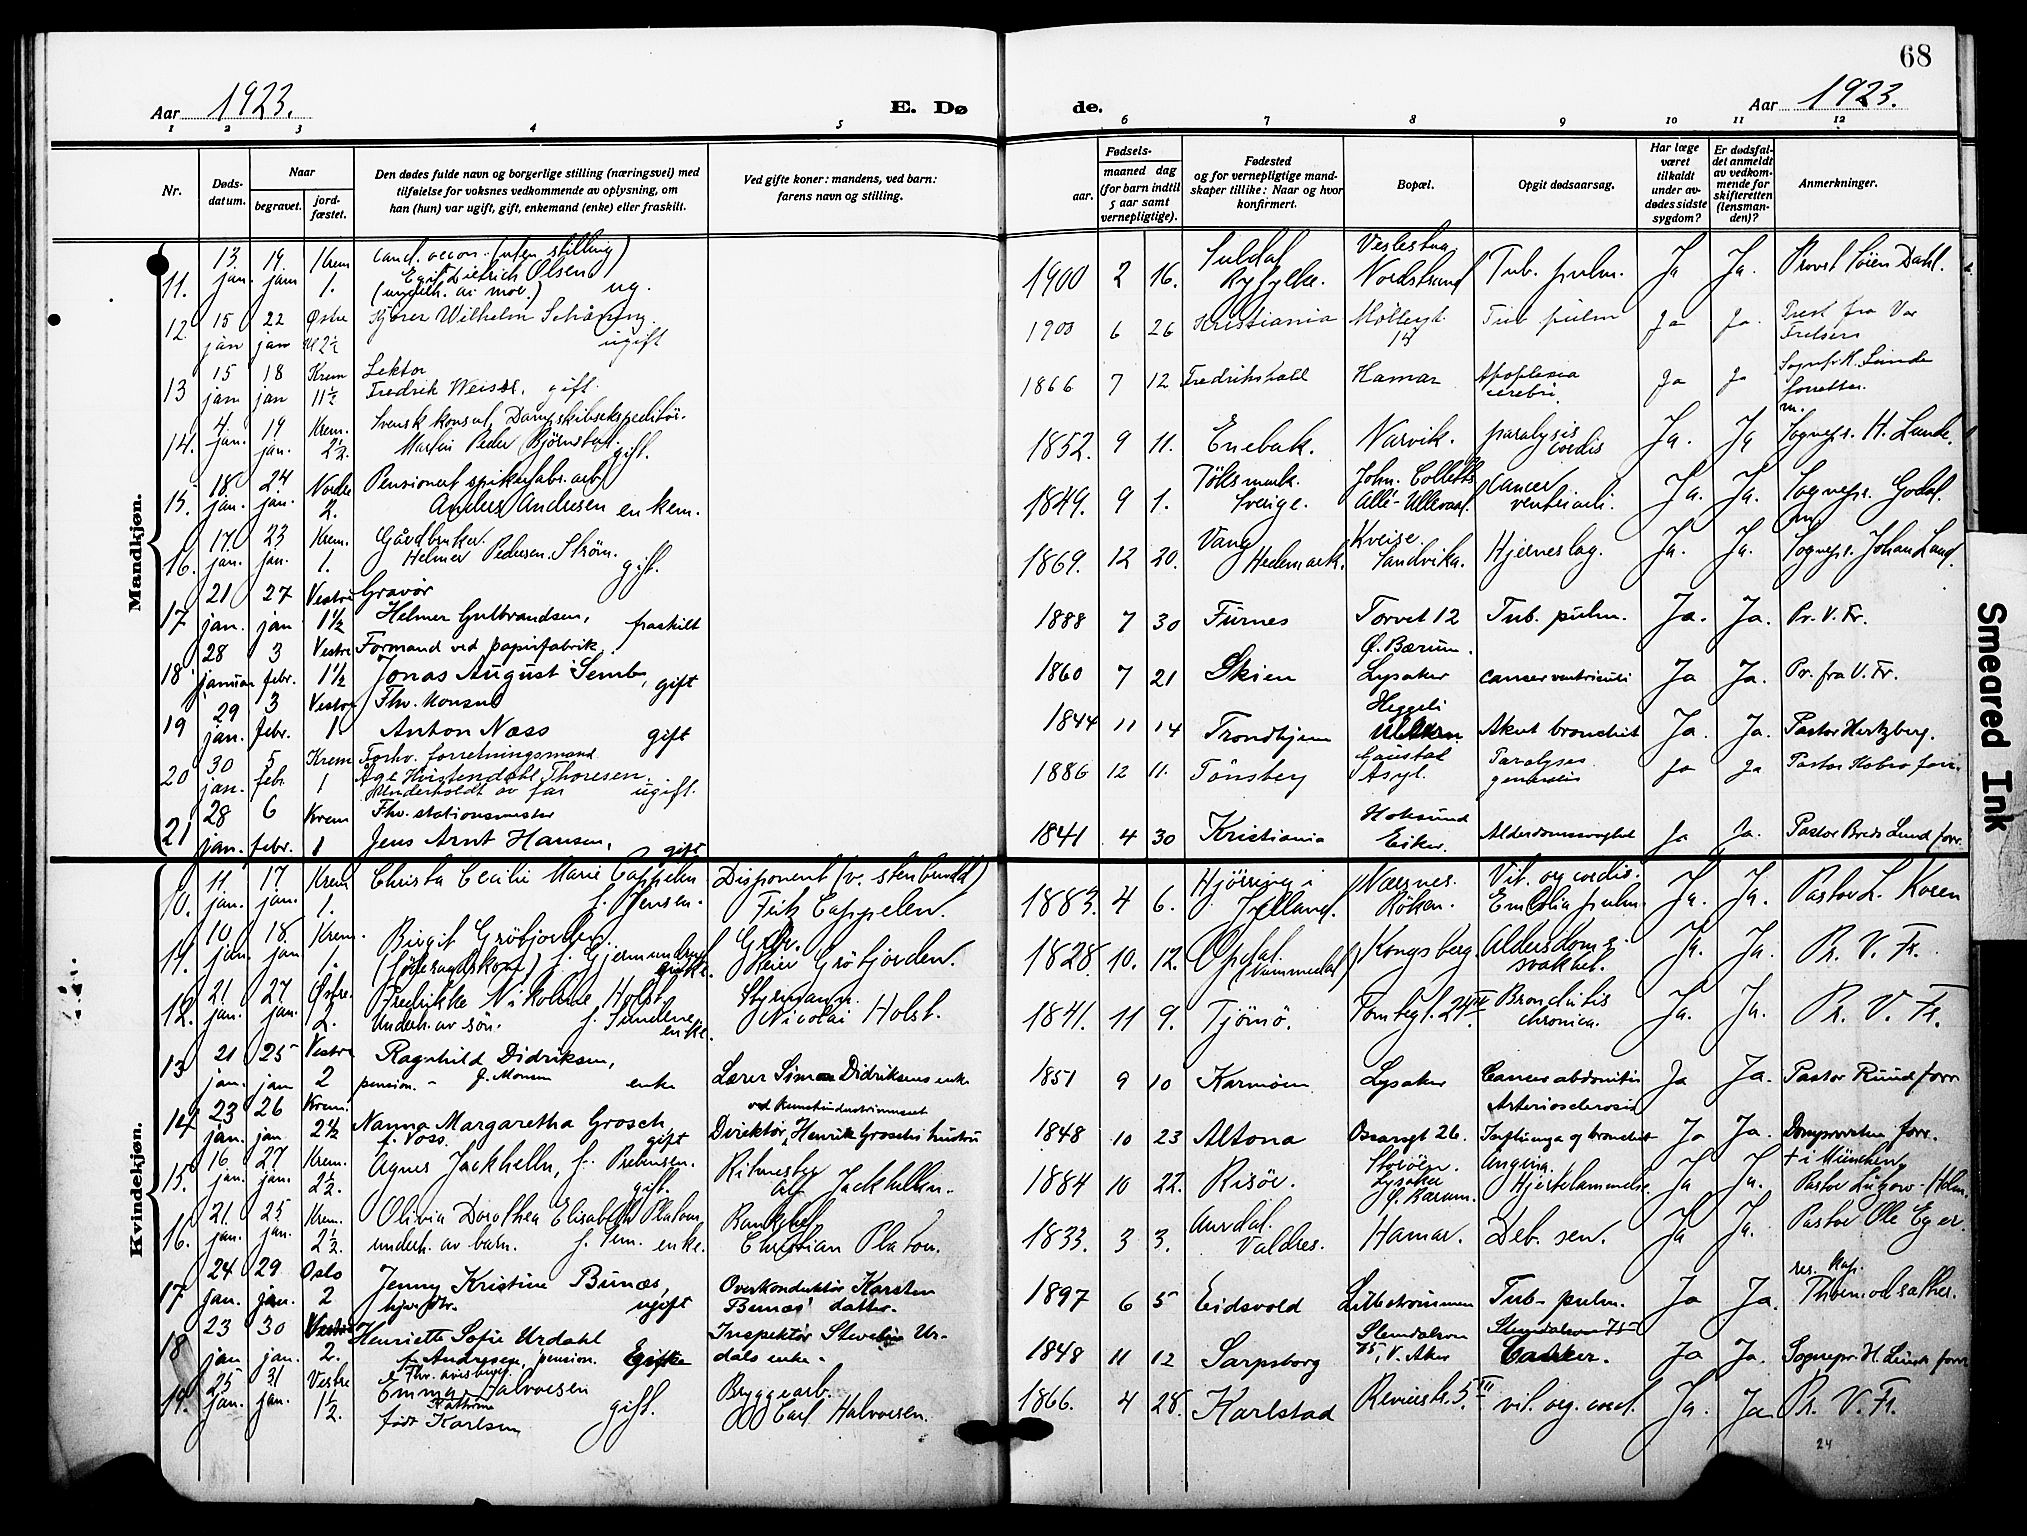 68
Aar 1923.
E. Dø
de.
Aar 1923.
1 2 3 4 5 6 7 8 9 10 11 12
Nr.
Døds-
datum.
Naar
begravet.
jord-
fæstet.
Den dødes fulde navn og borgerlige stilling (næringsvei) med
tilføielse for voksnes vedkommende av oplysning, om
han (hun) var ugift, gift, enkemand (enke) eller fraskilt.
Ved gifte koner: mandens, ved barn:
farens navn og stilling.
Fødsels-
aar.
maaned dag
(for barn indtil
5 aar samt
vernepligtige).
Fødested
og for vernepligtige mand-
skaper tillike: Naar og hvor
konfirmert.
Bopæl.
Opgit dødsaarsag.
Har læge
været
tilkaldt
under av-
dødes sidste
sygdom?
Er dødsfal-
det anmeldt
av vedkom-
mende for
skifteretten
(lensman-
den)?
Anmerkninger.
Mandkjøn.
11. 13 jan. 19 jan. Krem 1. cand. oecon. (uten stilling)
Egil Dietrich Olsen ug.
(underh. av mor.)
1900 2 16. Suldal Ryfylke. Nordstrand Tub. pulm. Ja Ja. Provst Sören Dahl.
12. 15 jan 22 jan Østre kl 2½ Wilhelm Schåning. ugift
1903 6 26 Kristiania Möllergt. 14 Tub pulm Ja Ja. Prest fra Vor Frelsers
13 15 jan 18 jan Krem 11½ Lektor
Fredrik Weisse, gift.
1866 7 12 Fredrikshald Hamar Apoplexia cerebri. Ja Ja Sognepr. H. Lunde forretter.
14. 4. jan. 19 jan. Krem. 2½. Svensk konsul, Dampskibsekspeditör.
Martin Peder Björnstad. gift.
1852. 9 11. Enebak. Narvik. paralysis cordis Ja. Ja Sognepr. H. Lunde.
15. 18. jan. 24 jan. Nordre 2. Pensionert spikerfabr. arb.
Anders Andresen enkem.
1849. 9 1. Töksmark. Sverige. John. Colletts Allé - Ullevaal. Cancer ventriculi. Ja. Ja. Sognepr. Godal.
16. 17. jan. 23 jan. Krem. 1. Gårdbruker.
Helmer Pedersen Ström. gift.
1869. 12 20. Vang Hedemark. Kveise. Sandvika. Hjerneslag. Ja. Ja. Sognepr. Johan Lund.
17 21 jan. 27 jan Vestre 1½ Gravör
Helmer Gulbrandsen, fraskilt
1888 7 30 Furnes Torvet 12 Tub. pulm. Ja. Ja. Pr. V. Fr.
18 28 januar 3 febr. Vestre 1½ Formand ved papirfabrik
Jonas August Semb, gift
1860 7 21 Skien Ø. Bærum. Lysaker cancer ventriculi Ja Ja. Pr. fra V. Fr.
19 29 jan. 3 febr. Vestre 1 Fhv. konsul
Anton Næss gift
1844 11 14 Trondhjem Heggeli Ullern. Akut bronchit Ja. Ja. Pastor Hertzberg.
20 30 jan. 5 febr Krem 1 Forhv. forretningsmand
Åge Hvistendahl Thoresen.
Underholdt av far ugift.
1886 12 11. Tönsberg Gaustad Asyl. Paralyses generalis Ja Ja Pastor
21 28 jan. 6 febr. Krem 1 Fhv. stationsmester
Jens Arnt Hansen, gift
1841 4 30 Kristiania Hoksund Eiker. Alderdomssvaghet Ja Ja. Pastor Lund forr.
Kvindekjøn.
10. 11. jan. 17. jan. Krem 1. Christa Cecilie Marie Cappelen
f. Jensen. Disponent (v. stenbrudd)
Fritz Cappelen.
1883. 4 6. Hjörring i Jylland. Nærsnes. Röken. Vit. org cordis. Embolia pulm. Ja. Ja. Pastor L. Koren
11. 10 jan. 18. jan Krem. 1. Birgit Gröbjorden.
f. Gjermundsen enke. Gbr.
Reier Gröbjorden.
1828. 10. 12. Opdal. (Nummedal) Kongsberg. Alderdomssvakhet. Ja. Ja. Pr. V. Fr.
12. 21. jan. 27. jan. Østre. 2. Fredrikke Nikoline Holst.
Underh. av sön. f. Sundene enke. Styrmann.
Nicolai Holst.
1841. 11 9. Tjömö. Tomtegt. 24 Bronchitis chronica. Ja. Ja. Pr. V. Fr.
13 21 jan. 25 jan Vestre 2 Ragnhild Didriksen,
pension. - f. Monsen enke Lærer Simon Didriksens enke
1851 9 10 Karmöen Lysaker Cancer abdominis Ja Ja. Pastor Ruud forr
14 23 jan. 26 jan Krem. 2½ Nanna Margaretha Grosch
f. Voss. gift ved Kunstindustrimuseet
Direktör Henrik Groschs hustru
1848 10 23 Altona Oscarsgt 26. Arteriosclerosis Influenza og bronchit Ja Ja. Domprovsten forr.
15. 16 jan. 27 jan. Krem. 2½. Agnes Jackhelln, f. Prebensen. gift. Ritmester
Alf Jackhelln.
1884 10 22. Risör. Lysaker Ø. Bærum. Angina. Hjertelammelse. Ja Ja. + i München
Pastor Lützow-Holm.
16. 21. jan. 25. jan. Krem. 2½. Olivia Dorothea Elisabeth Platou
underh. av barn. enke. Banksjef
Christian Platou.
1833. 3 3. Aurdal. Valdres. Hamar. Deb. sen. Ja Ja. Pastor Ole Eger.
17 24 jan. 29 jan. Oslo 2 Jenny Kristine Bunæs,
ugift Overkonduktör Karsten
Bunæs' datter.
1897 6 5 Eidsvold Lilleströmmen Tub. pulm. Ja Ja. res. Kap.
18 23 jan 30 jan. Vestre 2. Henriette Sofie Urdahl
f. Andresen, pension. Enke Inspektör Ur-
dals enke.
1848 11 12 Sarpsborg Slemdalsvn 75, V. Aker Slemdalsvn 75 Cancer. Ja Ja. Sognepr. H. Lunde forr
19. 25 jan. 31 jan. Vestre 1½. Fhv. avisbud.
Emma Halvorsen gift.
född Karlsen Bryggearb.
Carl Halvorsen.
1866. 4 28. Karlstad 5. III vit. org. cord. Ja. Ja. Pr. V. Fr.
24
Smeared Ink